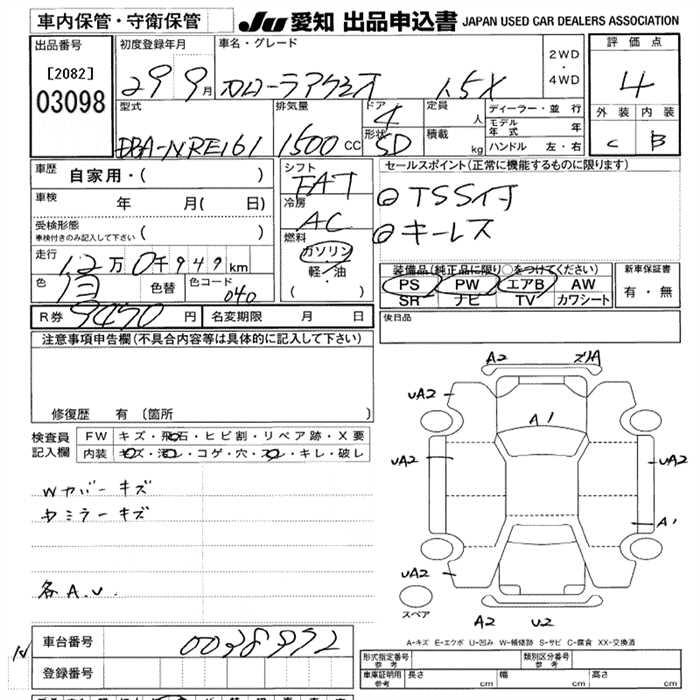 車内保管・守衛保管 JU 愛知 出品申込書 JAPAN USED CAR DEALERS ASSOCIATION
出品番号 [2082] 03098
初度登録年月 29 9月
車名・グレード カローラアクシオ 1.5X
2WD・4WD
評価点 4
外装 内装
C B
型式 DBA-NRE161
排気量 1500 CC
ドア 4
形状 SD
定員 人
積載 kg
ディーラー・並行
モデル年式 年
ハンドル 左・右
車歴 自家用・( )
車検 年 月( 日)
受検形態 車検付きのみ記入して下さい ( )
走行 12万0千949km
色 白 色替 色コード 040
シフト FAT
冷房 AC
燃料 ガソリン 軽・油 ( )
セールスポイント(正常に機能するものに限ります)
◎TSS付
◎キーレス
装備品(純正品に限り○をつけてください)
PS PW エアB AW
SR ナビ TV カワシート
新車保証書 有・無
R券 9470円 名変期限 月 日
後日品
注意事項申告欄(不具合内容等は具体的に記入して下さい)
修復歴 有 〔箇所 〕
検査員記入欄
FW キズ・飛石・ヒビ割・リペア跡・X要
内装 キズ・汚レ・コゲ・穴・スレ・キレ・破レ
Wカバーキズ
ミラーキズ
各A.U.
A2
UA2
A1
UA2 UA2
A1
UA2 UA2
A2 U2
スペア
A-キズ E-エクボ U-凹み W-補修跡 S-サビ C-腐食 XX-交換済
車台番号
登録番号
型式指定番号 参考
類別区分番号 参考
車庫証明用 参考 長さ cm 幅 cm 高さ cm